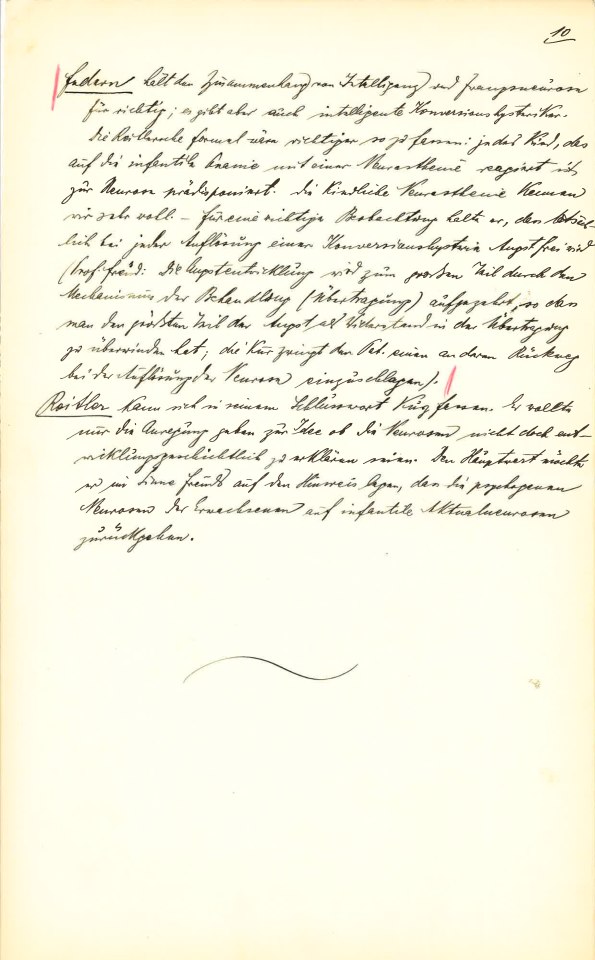 10
Federn hält den Zusammenhang von Intelligenz und Zwangsneurose
für richtig; es gibt aber auch intelligente Konversionshysteriker.
Die Reitlersche Formel wäre richtiger so zu fassen: jedes Kind, das
auf die infantile Onanie mit einer Neurasthenie reagiert ist
zur Neurose prädisponiert. Die kindliche Neurasthenie kennen
wir sehr wohl. – Für eine wichtige Beobachtung halte er, dass
lich bei jeder Auflösung einer Konversionshysterie Angst frei wird
(Prof. Freud: Die Angstentwicklung wird zum großen Teil durch den
Mechanismus der Behandlung (Übertragung) aufgezehrt, so dass
man den größten Teil der Angst als Widerstand in der Übertragung
zu überwinden hat; die Kur zwingt den Pat. einen anderen Rückweg
bei der Auflösung der Neurose einzuschlagen).
Reitler kann sich in seinem Schlusswort kurz fassen. Er wollte
nur die Anregung geben zur Idee ob die Neurosen nicht doch ent-
wicklungsgeschichtlich zu erklären seien. Den Hauptwert möchte
er im Sinne Freuds auf den Hinweis legen, dass die psychogenen
Neurosen der Erwachsenen auf infantile Aktualneurosen
zurückgehen.